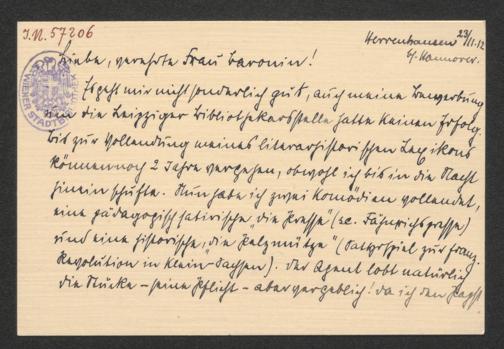 I.N. 57206
Herrenhausen 23/II.12
b/ Hannover.
Liebe, verehrte Frau Baronin!
Es geht mir nicht sonderlich gut, auch meine Bewerbung
um die Leipziger Bibliothekarsstelle hatte keinen Erfolg.
Bis zur Vollendung meines literarhistorischen Lexikons
können noch 2 Jahre vergehen, obwohl ich bis in die Nacht
hinein schufte. Nun habe ich zwei Komödien vollendet,
eine pädagogisch satirische "die Presse" (sc. Fähnrichspresse)
und eine historische, "die Pelzmütze" (Satyrspiel zur franz.
Revolution in Klein-Sachsen). Der Agent lobt natürlich
die Stücke – seine Pflicht – aber vergeblich! da ich den